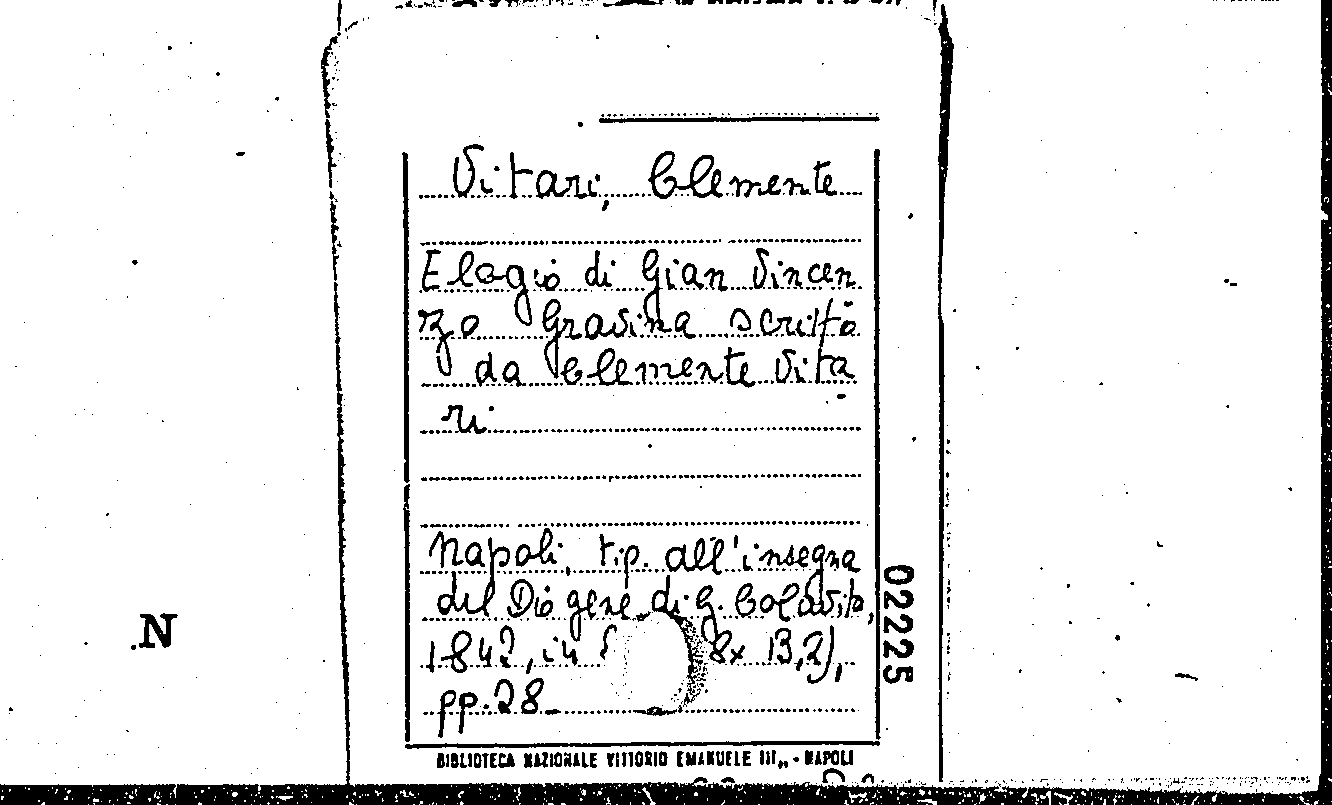 Vitari, Clemente
Elogio di Gian Vincen
zo Gravina scritto
da Clemente Vita
ri
Napoli, tip. all'insegna
del Diogene di G. Colavita,
1842, in 8x 13,2),
pp. 28
02225
N
BIBLIOTECA NAZIONALE VITTORIO EMANUELE III,, - NAPOLI